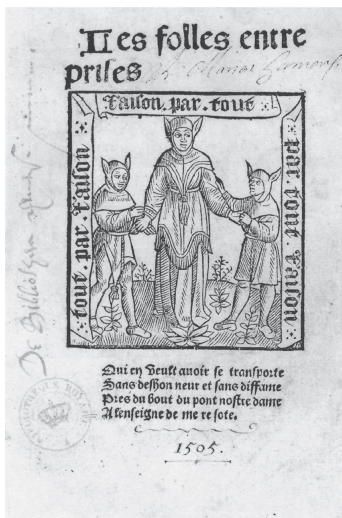 Les folles entre
prises
Raison. par. tout
tout. par. Raison
par tout. Raison
Qui en veult avoir se transporte
Sans deshon neur et sans diffame
Pres du bout du pont nostre dame
A lenseigne de me re sote.
1505.